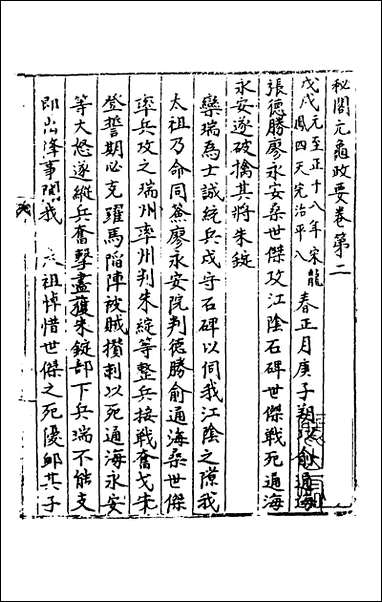 秘閣元龜政要卷第二
戊戌元至正十八年宋龍鳳四天完治平八春正月庚子朔 俞通海
張德勝廖永安桑世傑攻江陰石碑世傑戰死通海
永安遂破擒其將朱錠
欒瑞為士誠統兵戍守石碑以伺我江陰之隙我
太祖乃命同簽廖永安院判德勝俞通海桑世傑
率兵攻之瑞州率州判朱綻等整兵接戰奮戈未
登誓期必克羅馬陷陣被賊攢刺以死通海永安
等大怒遂縱兵奮擊盡獲朱錠部下兵瑞不能支
即出降事聞我 太祖悼惜世傑之死優卹其子